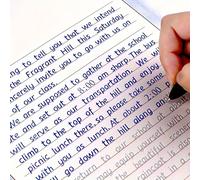 ng to tell you that we intend
the Fragrant hill this Saturday
ncerely invite you to go with us on
of our class.
We are supposed to gather at the school
te and set out at 8:00 am sharp. The bus
will serve as transportation. We will
climb to the top of the hill and enjoy
picnic lunch there, so please take some
with you as lunch. At about 2:00
go down the hill along